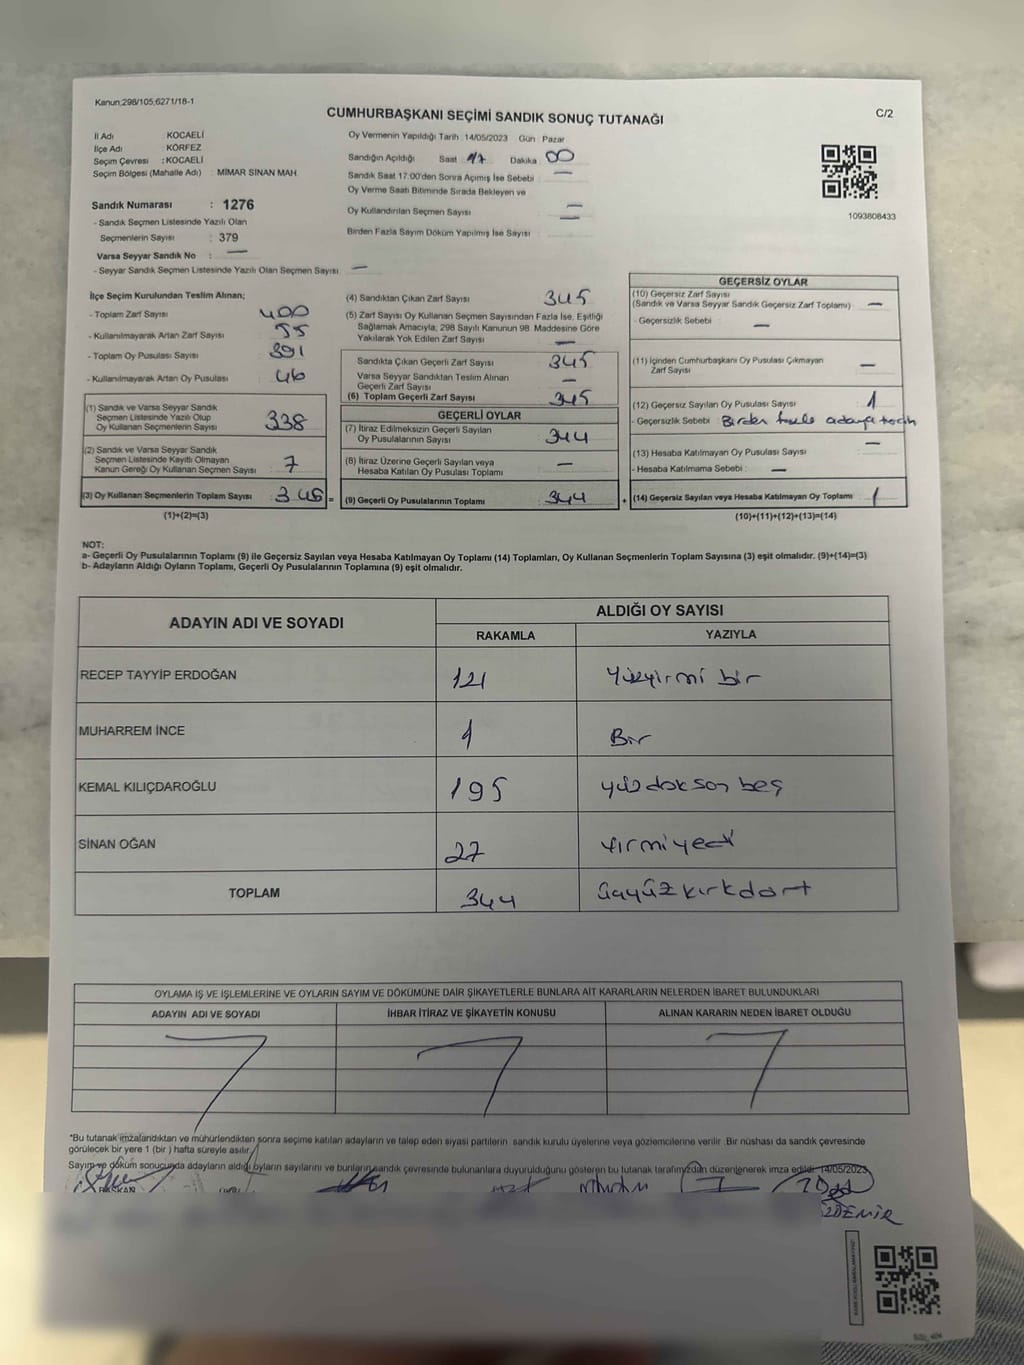 Kanun,298/105,6271/18-1
C/2
CUMHURBAŞKANI SEÇİMİ SANDIK SONUÇ TUTANAĞI
İl Adı : KOCAELİ
İlçe Adı : KÖRFEZ
Seçim Çevresi : KOCAELİ
Seçim Bölgesi (Mahalle Adı) : MİMAR SİNAN MAH.
Sandık Numarası : 1276
- Sandık Seçmen Listesinde Yazılı Olan
Seçmenlerin Sayısı : 379
Varsa Seyyar Sandık No : —
- Seyyar Sandık Seçmen Listesinde Yazılı Olan Seçmen Sayısı —
Oy Vermenin Yapıldığı Tarih : 14/05/2023 Gün : Pazar
Sandığın Açıldığı Saat 17 Dakika 00
Sandık Saat 17:00'den Sonra Açımış İse Sebebi : —
Oy Verme Saati Bitiminde Sırada Bekleyen ve
Oy Kullandırılan Seçmen Sayısı : —
Birden Fazla Sayım Döküm Yapılmış İse Sayısı : —
1093808433
İlçe Seçim Kurulundan Teslim Alınan;
- Toplam Zarf Sayısı : 400
- Kullanılmayarak Artan Zarf Sayısı : 55
- Toplam Oy Pusulası Sayısı : 391
- Kullanılmayarak Artan Oy Pusulası : 46
(1) Sandık ve Varsa Seyyar Sandık
Seçmen Listesinde Yazılı Olup
Oy Kullanan Seçmenlerin Sayısı 338
(2) Sandık ve Varsa Seyyar Sandık
Seçmen Listesinde Kayıtlı Olmayan
Kanun Gereği Oy Kullanan Seçmen Sayısı 7
(3) Oy Kullanan Seçmenlerin Toplam Sayısı 345
(1)+(2)=(3)
(4) Sandıktan Çıkan Zarf Sayısı 345
(5) Zarf Sayısı Oy Kullanan Seçmen Sayısından Fazla İse, Eşitliği
Sağlamak Amacıyla, 298 Sayılı Kanunun 98. Maddesine Göre
Yakılarak Yok Edilen Zarf Sayısı —
Sandıkta Çıkan Geçerli Zarf Sayısı 345
Varsa Seyyar Sandıktan Teslim Alınan
Geçerli Zarf Sayısı —
(6) Toplam Geçerli Zarf Sayısı 345
GEÇERLİ OYLAR
(7) İtiraz Edilmeksizin Geçerli Sayılan
Oy Pusulalarının Sayısı 344
(8) İtiraz Üzerine Geçerli Sayılan veya
Hesaba Katılan Oy Pusulası Toplamı —
= (9) Geçerli Oy Pusulalarının Toplamı 344 +
GEÇERSİZ OYLAR
(10) Geçersiz Zarf Sayısı
(Sandık ve Varsa Seyyar Sandık Geçersiz Zarf Toplamı) —
- Geçersizlik Sebebi : —
(11) İçinden Cumhurbaşkanı Oy Pusulası Çıkmayan
Zarf Sayısı —
(12) Geçersiz Sayılan Oy Pusulası Sayısı 1
- Geçersizlik Sebebi : Birden fazla adaya
(13) Hesaba Katılmayan Oy Pusulası Sayısı —
- Hesaba Katılmama Sebebi : —
(14) Geçersiz Sayılan veya Hesaba Katılmayan Oy Toplamı 1
(10)+(11)+(12)+(13)=(14)
NOT:
a- Geçerli Oy Pusulalarının Toplamı (9) ile Geçersiz Sayılan veya Hesaba Katılmayan Oy Toplamı (14) Toplamları, Oy Kullanan Seçmenlerin Toplam Sayısına (3) eşit olmalıdır. (9)+(14)=(3)
b- Adayların Aldığı Oyların Toplamı, Geçerli Oy Pusulalarının Toplamına (9) eşit olmalıdır.
ADAYIN ADI VE SOYADI ALDIĞI OY SAYISI
RAKAMLA YAZIYLA
RECEP TAYYİP ERDOĞAN 121 Yüzyirmi bir
MUHARREM İNCE 1 Bir
KEMAL KILIÇDAROĞLU 195 yüzdoksan beş
SİNAN OĞAN 27 Yirmiyedi
TOPLAM 344 üçyüzkırkdört
OYLAMA İŞ VE İŞLEMLERİNE VE OYLARIN SAYIM VE DÖKÜMÜNE DAİR ŞİKAYETLERLE BUNLARA AİT KARARLARIN NELERDEN İBARET BULUNDUKLARI
ADAYIN ADI VE SOYADI İHBAR İTİRAZ VE ŞİKAYETİN KONUSU ALINAN KARARIN NEDEN İBARET OLDUĞU
*Bu tutanak imzalandıktan ve mühürlendikten sonra seçime katılan adayların ve talep eden siyasi partilerin sandık kurulu üyelerine veya gözlemcilerine verilir. Bir nüshası da sandık çevresinde
görülecek bir yere 1 (bir) hafta süreyle asılır.
Sayım ve döküm sonucunda adayların aldığı oyların sayılarını ve bunların sandık çevresinde bulunanlara duyurulduğunu gösteren bu tutanak tarafımızdan düzenlenerek imza edildi. 14/05/2023
BAŞKAN